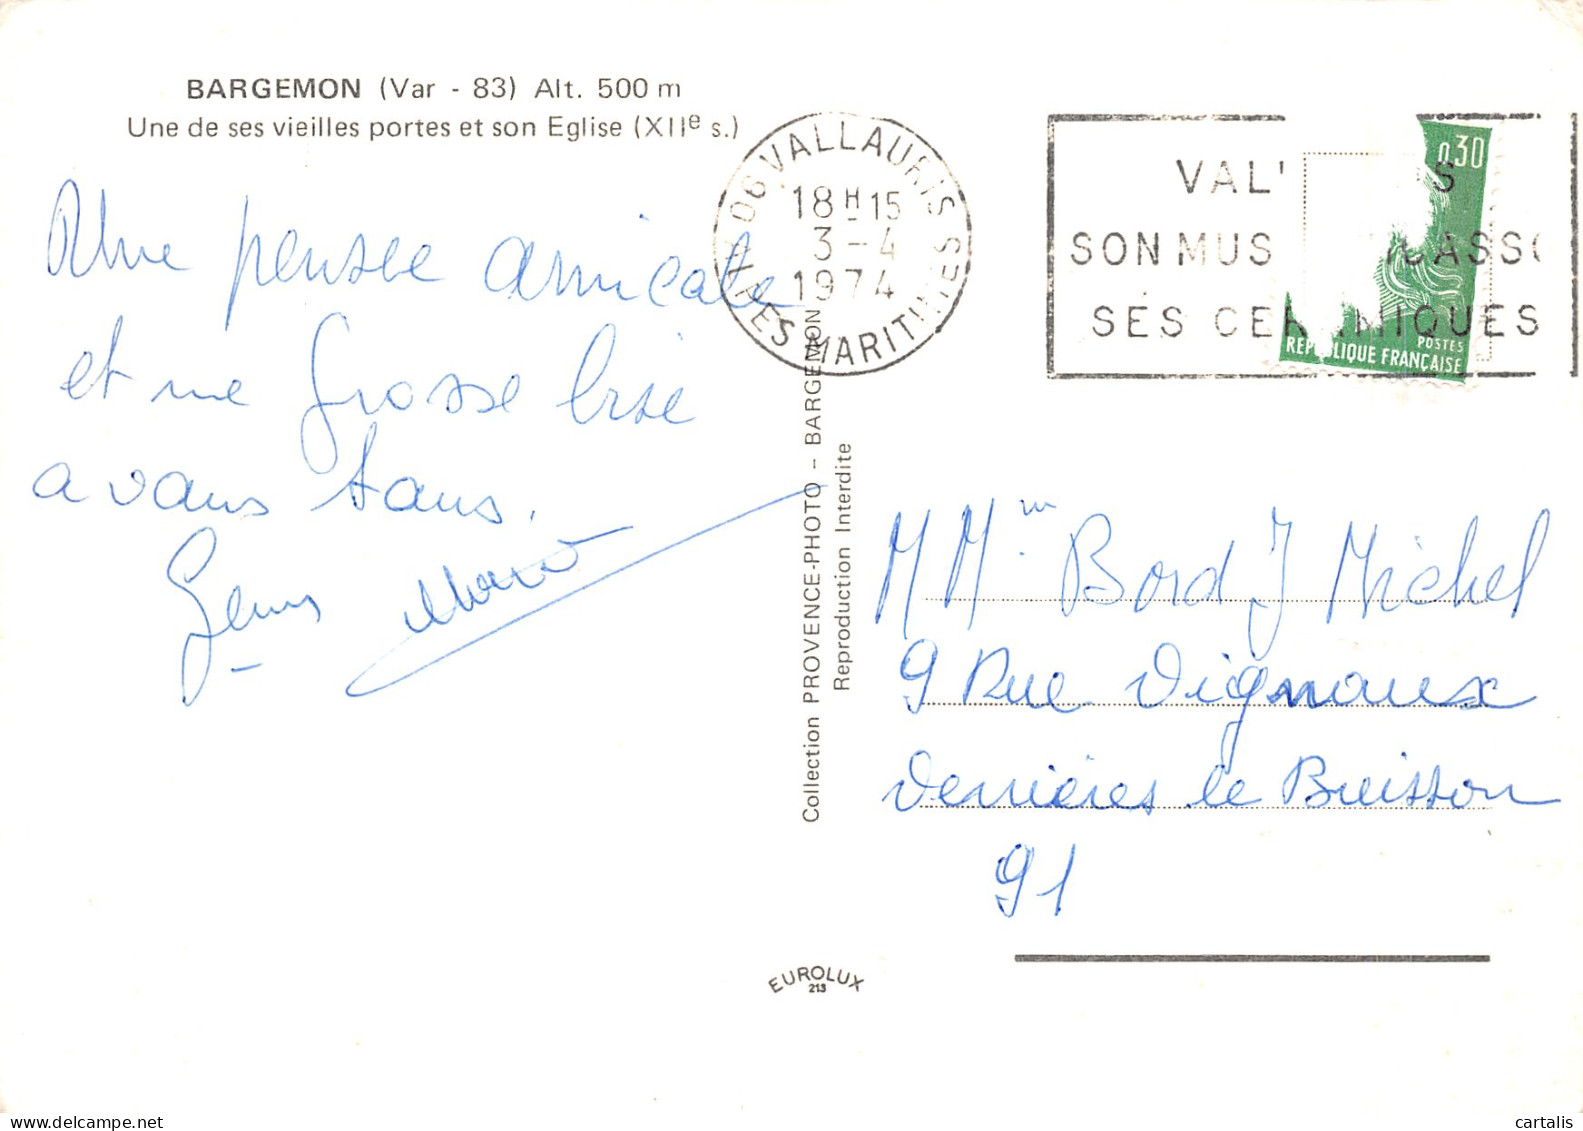 BARGEMON (Var - 83) Alt. 500 m
Une de ses vieilles portes et son Eglise (XIIe s.)
Une pensée amicale
et une grosse bise
a vous tous.
06 VALLAURIS
18H15
3-4
1974
ALPES MARITIMES
VAL' S
SON MUS ICASSO
SES CERAMIQUES
0,30
POSTES
REPUBLIQUE FRANÇAISE
Collection PROVENCE-PHOTO - BARGEMON
Reproduction Interdite
M Mme Bord J Michel
9 Rue Vignaux
Verrières le Buisson
91
EUROLUX
213
www.delcampe.net
cartalis